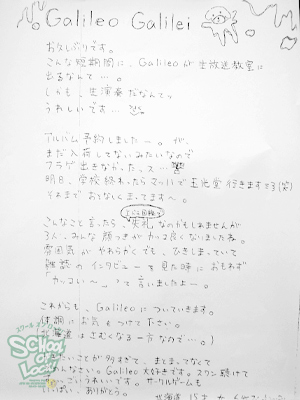 Galileo Galilei
お久しぶりです。
こんな短期間に、Galileoが生放送教室に
出るなんて…。
しかも、生演奏だなんてっ
うれしいです…
アルバム予約しましたー。が、
まだ入荷してないみたいなので
フラゲ出きなかった。ス…
明日、学校終わったらマッハで玉光堂行きます≡3(笑)
それまでおとなしくまってまーす。
こんなこと言ったら、失礼なのかもしれませんが
3人、みんな顔つきがかっこ良くなりましたね。
雰囲気がやわらかくても、ひきしまっていて
雑誌のインタビューを見た時におもわず
「かっこいー〜」って言いましたよー。
これからも、Galileoについていきます。
体調にお気をつけて下さい。
(北海道はさむくなる一方なので…。)
いことが多すぎて、まとまってなくて
んなさい。Galileo大好きです。
ありがとう。
SCHOOL OF LOCK!